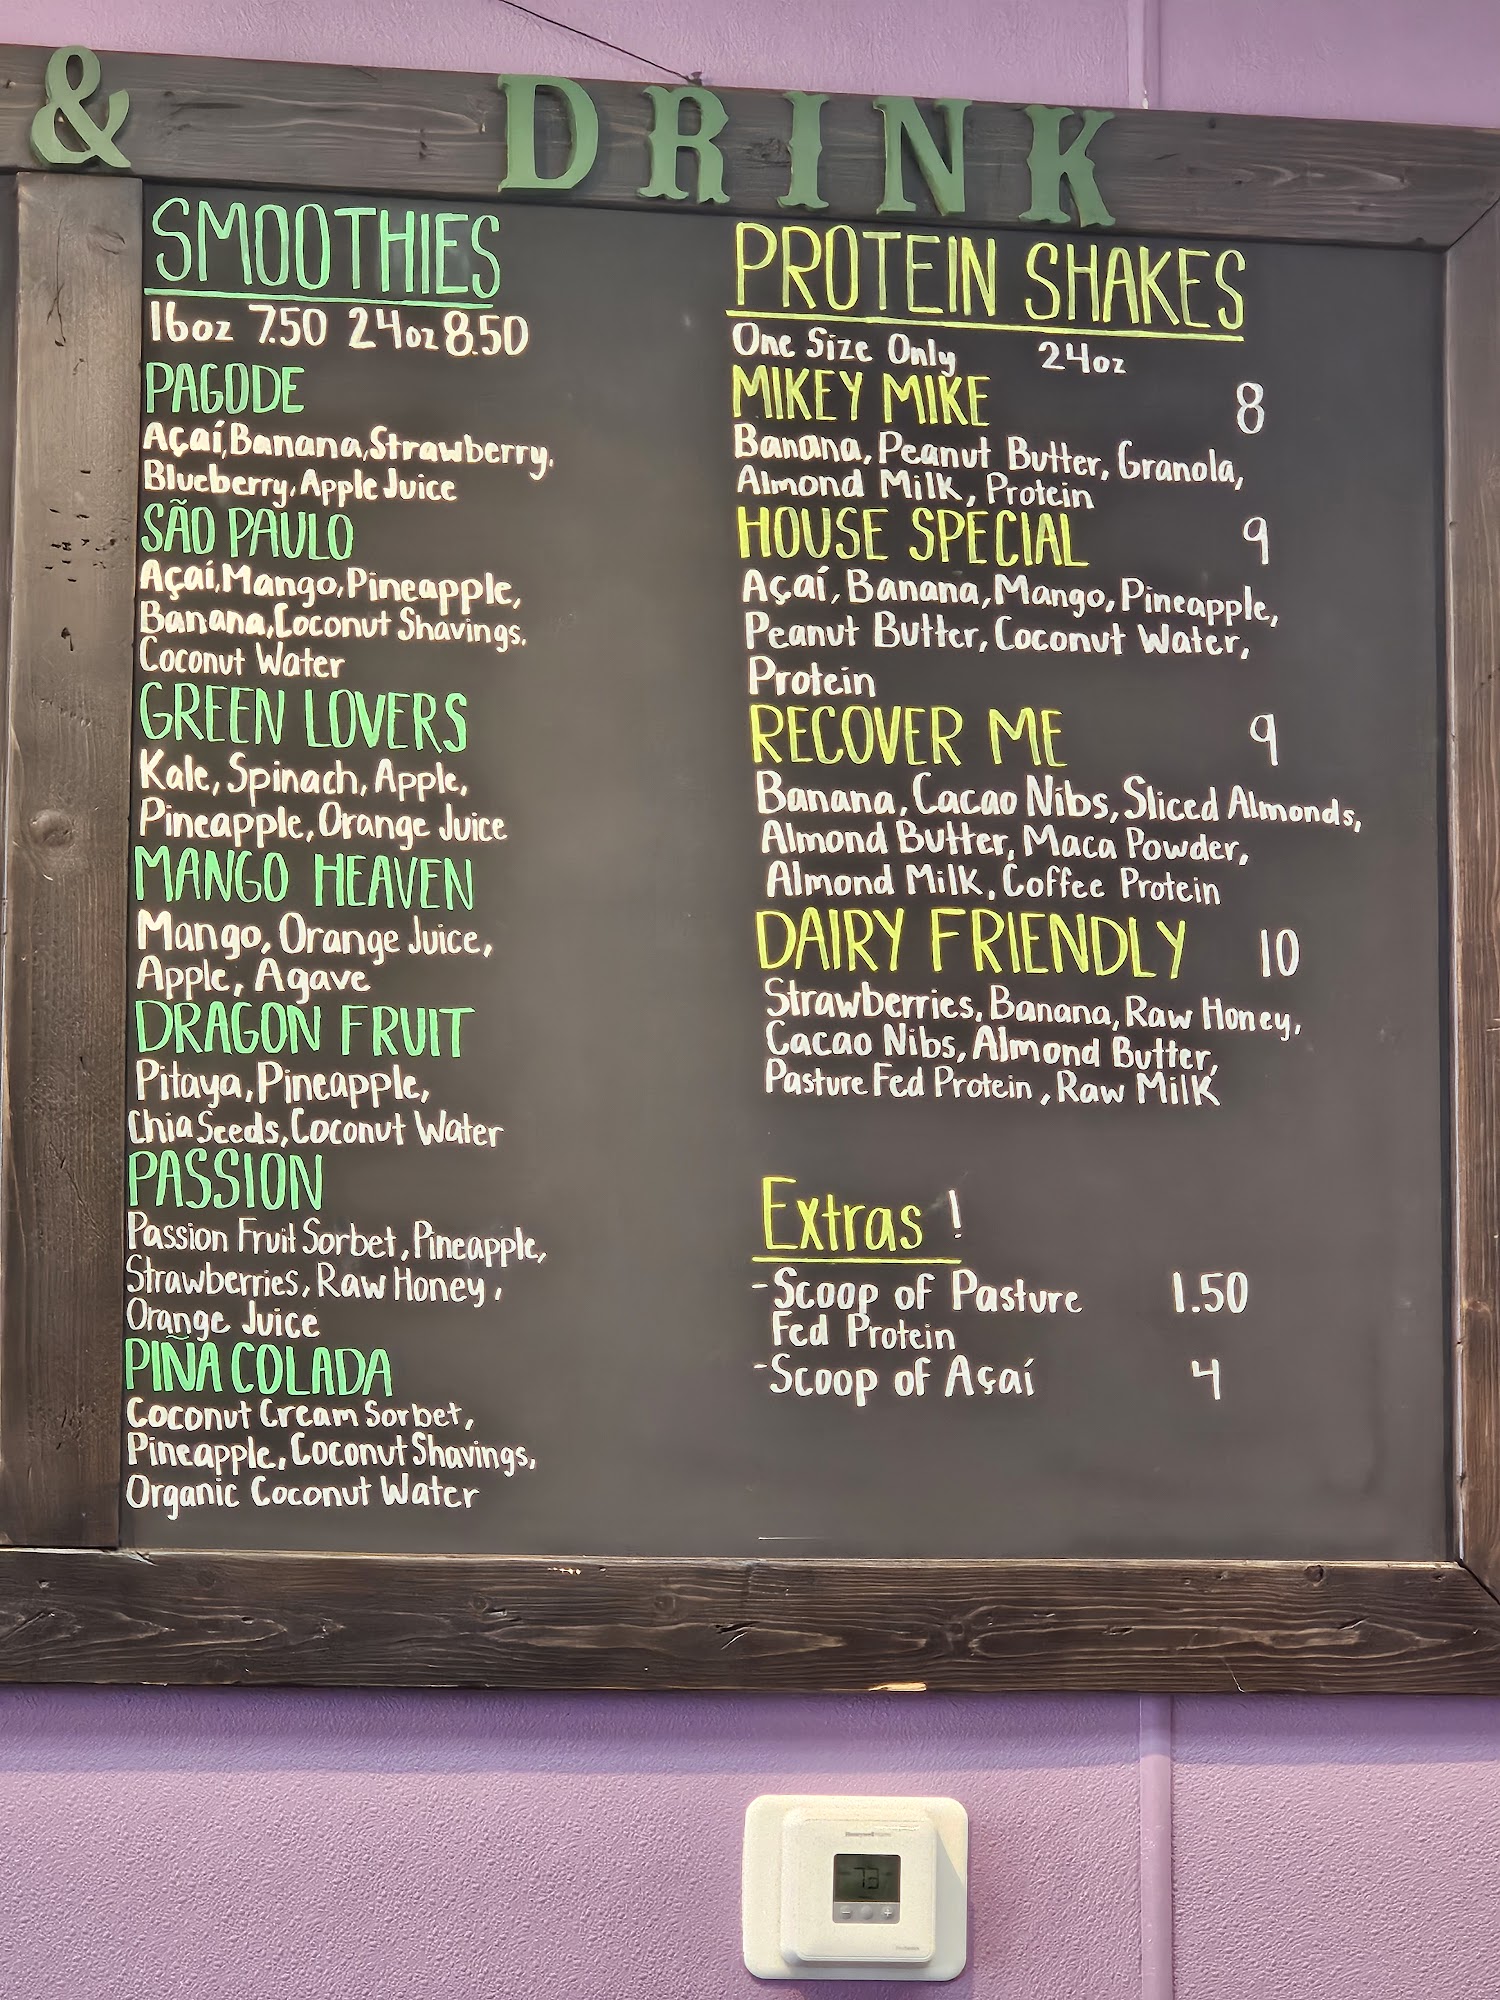 & DRINK
SMOOTHIES
16oz 7.50 24oz 8.50
PAGODE
Açaí, Banana, Strawberry,
Blueberry, Apple Juice
SÃO PAULO
Açaí, Mango, Pineapple,
Banana, Coconut Shavings,
Coconut Water
GREEN LOVERS
Kale, Spinach, Apple,
Pineapple, Orange Juice
MANGO HEAVEN
Mango, Orange Juice,
Apple, Agave
DRAGON FRUIT
Pitaya, Pineapple,
Chia Seeds, Coconut Water
PASSION
Passion Fruit Sorbet, Pineapple,
Strawberries, Raw Honey,
Orange Juice
PIÑA COLADA
Coconut Cream Sorbet,
Pineapple, Coconut Shavings,
Organic Coconut Water
PROTEIN SHAKES
One Size Only 24oz
MIKEY MIKE 8
Banana, Peanut Butter, Granola,
Almond Milk, Protein
HOUSE SPECIAL 9
Açaí, Banana, Mango, Pineapple,
Peanut Butter, Coconut Water,
Protein
RECOVER ME 9
Banana, Cacao Nibs, Sliced Almonds,
Almond Butter, Maca Powder,
Almond Milk, Coffee Protein
DAIRY FRIENDLY 10
Strawberries, Banana, Raw Honey,
Cacao Nibs, Almond Butter,
Pasture Fed Protein, Raw Milk
Extras!
-Scoop of Pasture 1.50
Fed Protein
-Scoop of Açaí 4
73